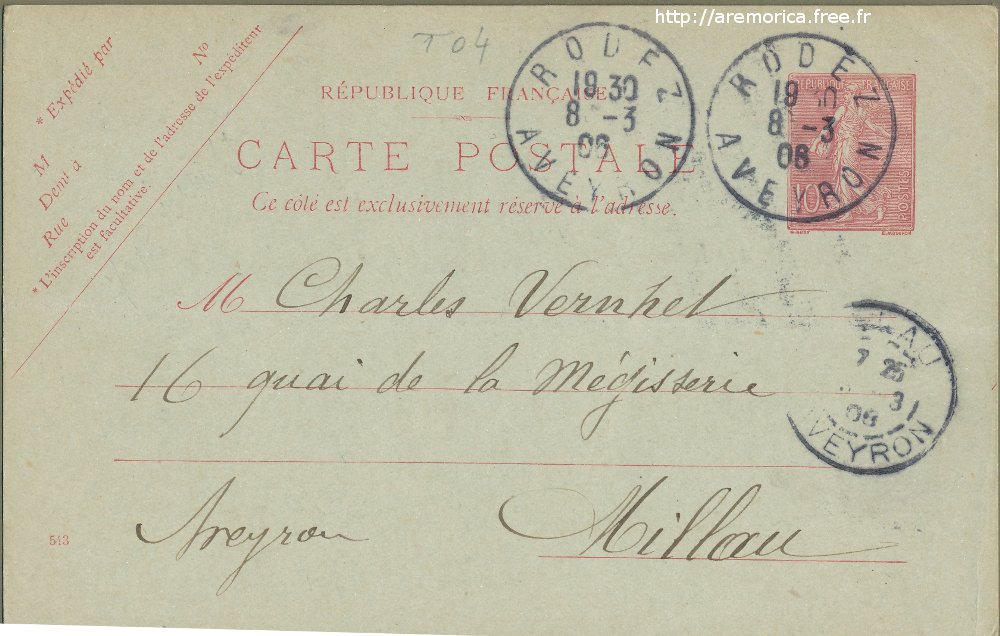 http://aremorica.free.fr
T 04
* Expédié par
No
M
Demt à
Rue
* L'inscription du nom et de l'adresse de l'expéditeur
est facultative.
RÉPUBLIQUE FRANÇAISE
CARTE POSTALE
Ce côté est exclusivement réservé à l'adresse.
RODEZ
19 30
8 -3
06
AVEYRON
RODEZ
19 30
8 -3
06
AVEYRON
RÉPUBLIQUE FRANÇAISE
10
POSTES
M Charles Vernhet
16 quai de la Mégisserie
Aveyron Millau
LAU
7 25
3
06
VEYRON
543